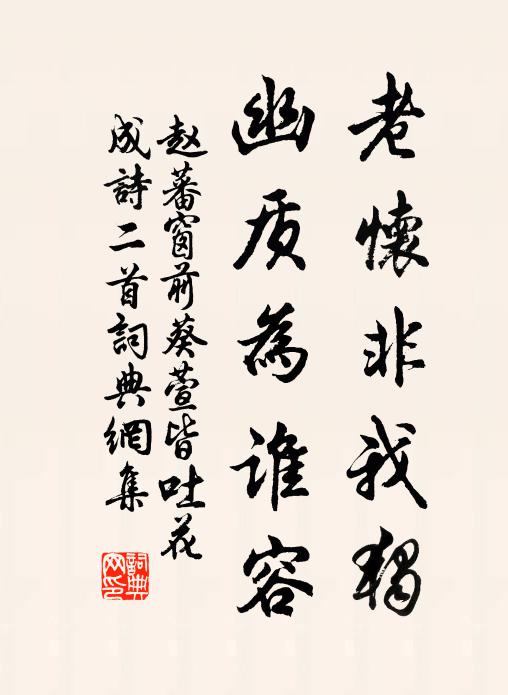 老懷非我獨
幽质為誰容
赵蕃窗前葵萱皆吐花
成詩二首詞典網集
詞典网印